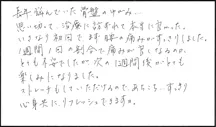 長年悩んでいた骨盤のゆがみ…
思い切って、治療に訪れて本当に良かった。
いきなり初回で、膝の痛みがすっきりしました。
1週間1回の割合で痛みが良くなるのが、
とても不安でしたが次の1週間後がとても
楽しみになりました。
ストレートもしていただけるので、あちこちすっきり
心身共に、リフレッシュできます。